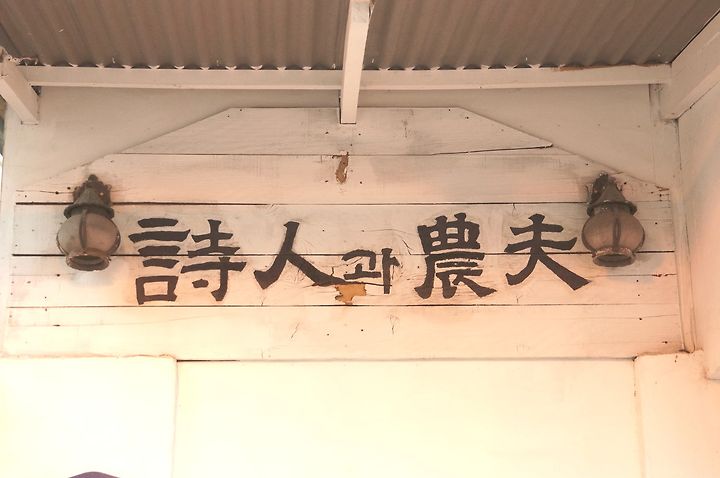 詩人과 農夫